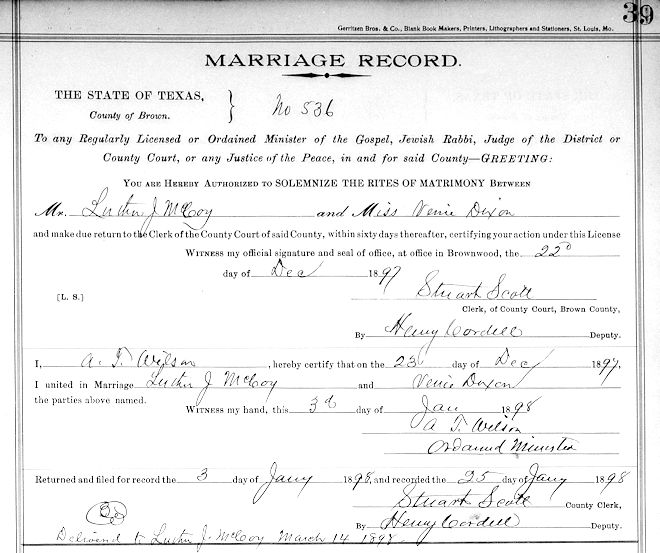 39
Gerritsen Bros. & Co., Blank Book Makers, Printers, Lithographers and Stationers, St. Louis, Mo.
MARRIAGE RECORD.
THE STATE OF TEXAS, } No 536
County of Brown.
To any Regularly Licensed or Ordained Minister of the Gospel, Jewish Rabbi, Judge of the District or
County Court, or any Justice of the Peace, in and for said County—GREETING:
YOU ARE HEREBY AUTHORIZED TO SOLEMNIZE THE RITES OF MATRIMONY BETWEEN
Mr. Luther J McCoy and Miss Venie Dixon
and make due return to the Clerk of the County Court of said County, within sixty days thereafter, certifying your action under this License
WITNESS my official signature and seal of office, at office in Brownwood, the 22d
day of Dec 1897
Stuart Scott
[L. S.] Clerk, of County Court, Brown County,
By Henry Cordell Deputy.
I, A. T. Wilson, hereby certify that on the 23 day of Dec 1897,
I united in Marriage Luther J McCoy and Venie Dixon
the parties above named.
WITNESS my hand, this 3d day of Jan 1898
A T. Wilson
Ordained Minister
Returned and filed for record the 3 day of Jany 1898, and recorded the 25 day of Jany 1898
Stuart Scott County Clerk,
By Henry Cordell Deputy.
Delivered to Luther J. McCoy March 14 1898.